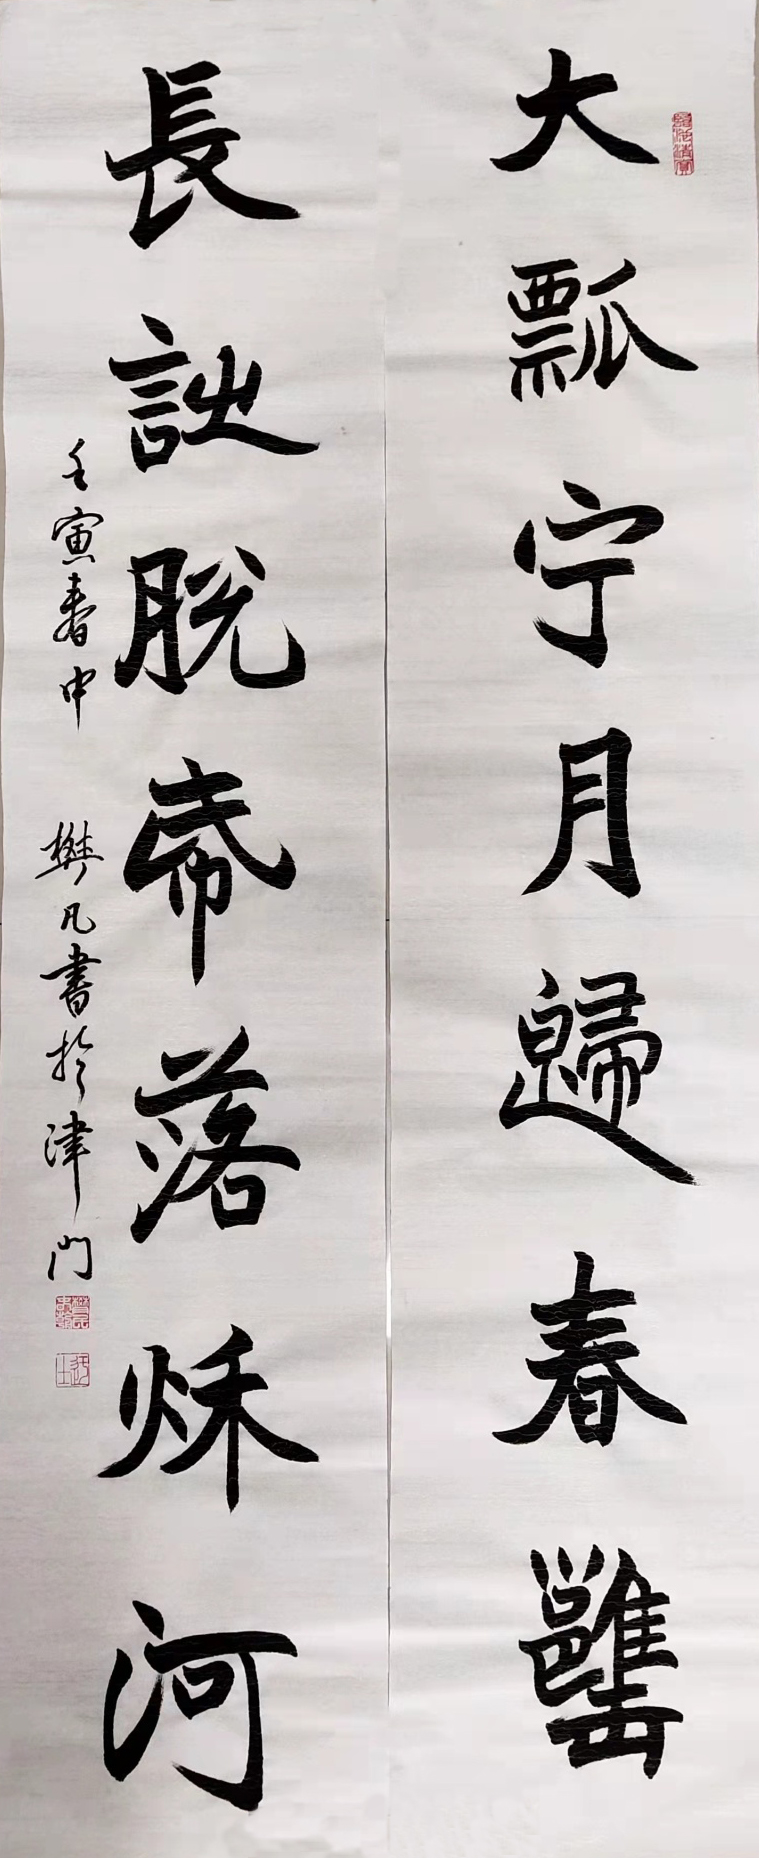 大瓢宁月歸春罋
長詘脫落秌河
壬寅春中 樊凡書於津門